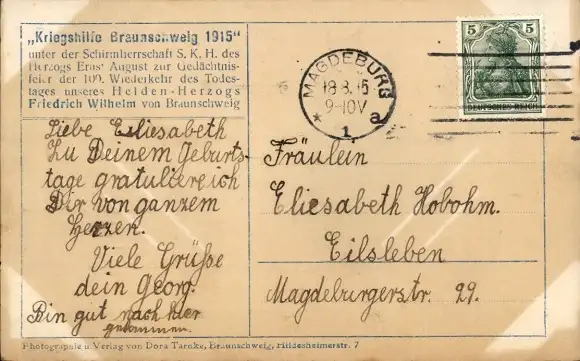 „Kriegshilfe Braunschweig 1915"
unter der Schirmherrschaft S. K. H. des
Herzogs Ernst August zur Gedächtnis-
feier der 100. Wiederkehr des Todes-
tages unseres Helden-Herzogs
Friedrich Wilhelm von Braunschweig
Liebe Eliesabeth
Zu Deinem Geburts-
tage gratuliere ich
Dir von ganzem
Herzen.
Viele Grüße
dein Georg.
Bin gut nach hier
gekommen.
MAGDEBURG
18.8.15
9-10V
* 1 a
5 5
DEUTSCHES REICH
Fräulein
Eliesabeth Hobohm.
Eilsleben
Magdeburgerstr. 29.
Photographie u. Verlag von Dora Tarnke, Braunschweig, Hildesheimerstr. 7